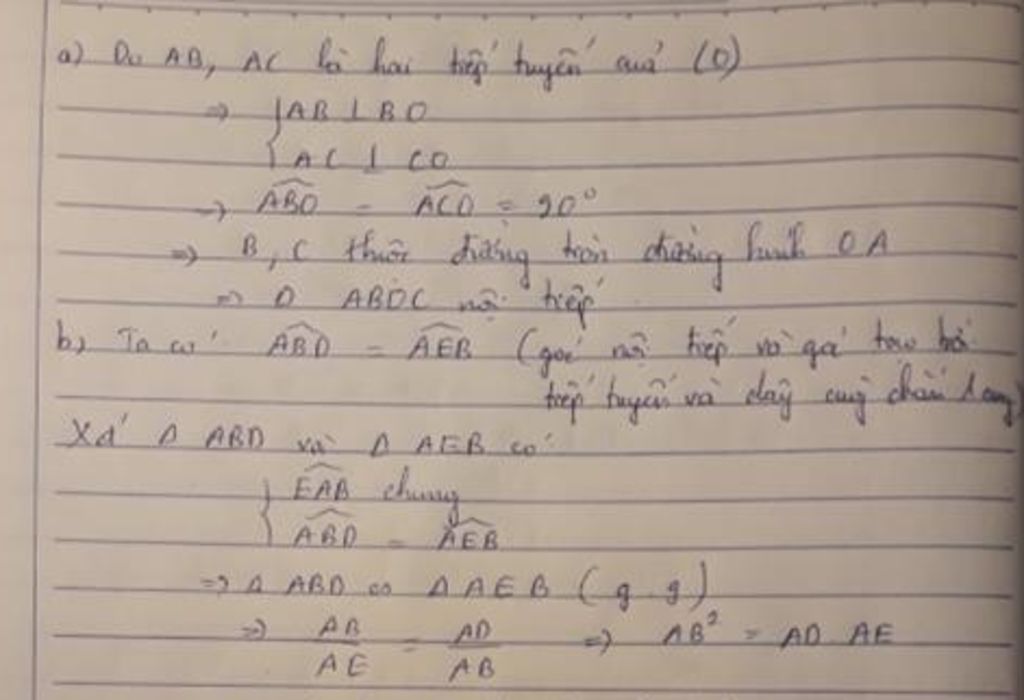 a) Do AB, AC là hai tiếp tuyến của (O)
=> { AB ⊥ BO
{ AC ⊥ CO
=> ABO = ACO = 90°
=> B, C thuộc đường tròn đường kính OA
=> ABOC nội tiếp
b) Ta có ABD = AEB (góc nội tiếp và góc tạo bởi
tiếp tuyến và dây cung chắn 1 cung)
Xét Δ ABD và Δ AEB có:
{ EAB chung
{ ABD = AEB
=> Δ ABD ∽ Δ AEB (g.g)
=> AB/AE = AD/AB => AB² = AD.AE